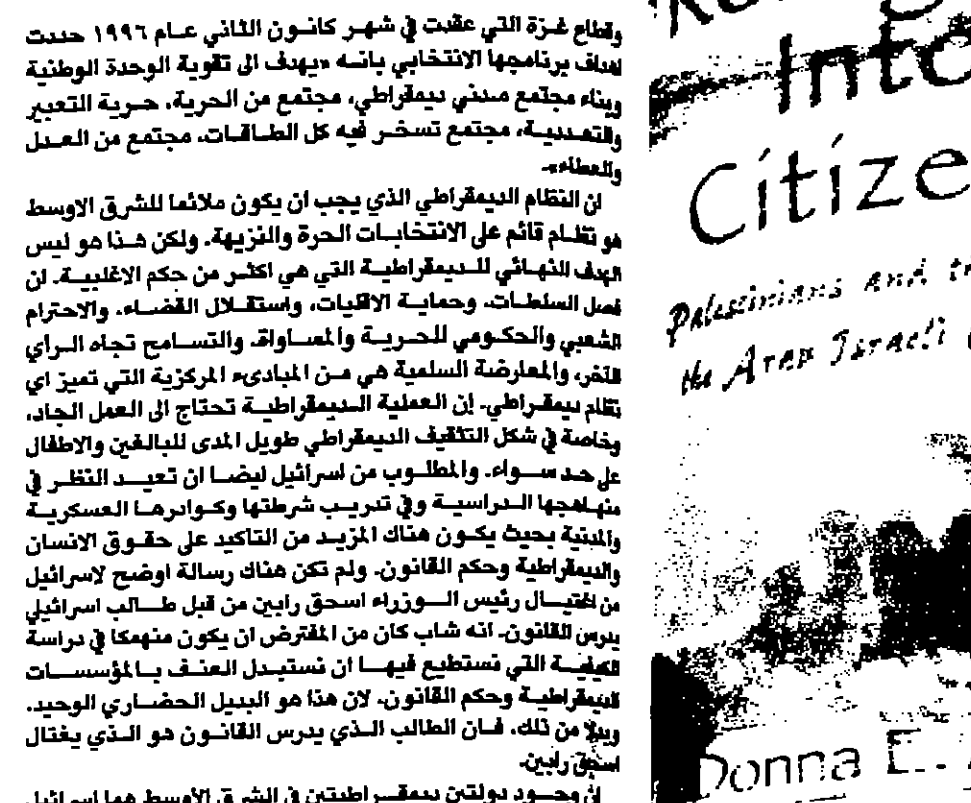 وقطاع غـزة التي عقدت في شهـر كانـون الثاني عـام ١٩٩٦ حددت
اهداف برنامجها الانتخابي بانـه «يهدف الى تقوية الوحدة الوطنية
وبناء مجتمع مدني ديمقراطي، مجتمع من الحرية، حـرية التعبير
والتعدديـة، مجتمع تسخـر فيه كل الطـاقـات، مجتمع من العـدل
والعطاء».
ان النظام الديمقراطي الذي يجب ان يكون ملائما للشرق الاوسط
هو نظـام قائم على الانتخابـات الحرة والنزيهة. ولكن هـذا هو ليس
الهدف النهائي للـديمقراطيـة التي هي اكثـر من حكم الاغلبيـة. ان
فصل السلطـات، وحمايـة الاقليات، واستقـلال القضـاء، والاحترام
الشعبي والحكـومي للحـريـة والمسـاواة، والتسـامح تجاه الـراي
الآخر، والمعارضة السلمية هي مـن المبادىء المركزية التي تميز اي
نظام ديمقـراطي. إن العملية الـديمقراطيـة تحتاج الى العمل الجاد،
وبخاصة في شكل التثقيف الديمقراطي طويل المدى للبالغين والاطفال
على حد سـواء. والمطلـوب من اسرائيل ايضـا ان تعيـد النظـر في
منهاهجها الـدراسيـة وفي تدريـب شرطتها وكـوادرهـا العسكريـة
والمدنية بحيث يكـون هناك المزيـد من التأكيد على حقـوق الانسان
والديمقراطية وحكم القانون. ولم تكن هناك رسالة اوضح لاسرائيل
من اغتيـال رئيس الـوزراء اسحق رابين من قبل طـالب اسرائيلي
يدرس القانون. انه شاب كان من المفترض ان يكون منهمكا في دراسة
الكيفيـة التي نستطيع فيهـا ان نستبـدل العنـف بـالمؤسسـات
الديمقراطيـة وحكم القانون، لان هذا هو البديل الحضـاري الوحيد.
وبدلا من ذلك، فـان الطالب الـذي يدرس القانـون هو الـذي يغتال
اسحق رابين.
ان وجـود دولتين ديمقـراطيتين في الشرق الأوسط هما اسرائيل
Inte
Citize
Palestinians and t
the Arab Israeli
Donna E.